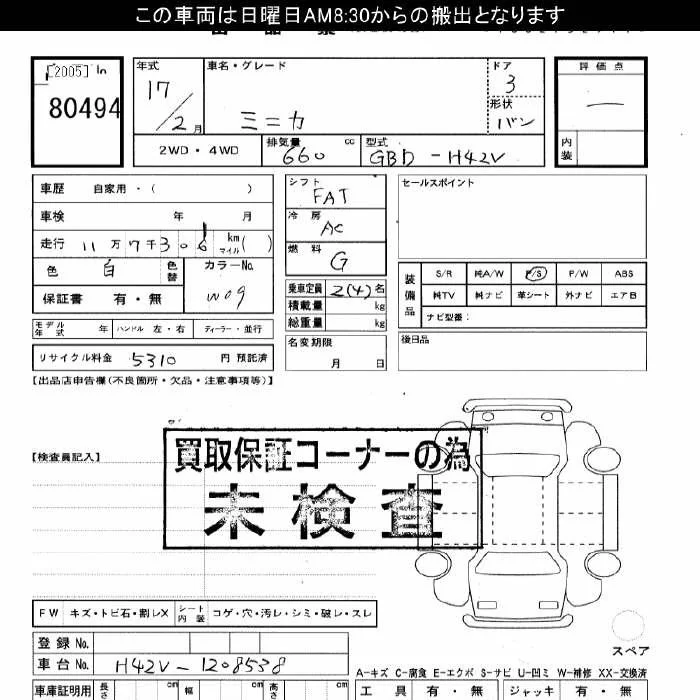 この車両は日曜日AM8:30からの搬出となります
[2005] In
80494
年式
17/2月
車名・グレード
ミニカ
ドア
3
形状
バン
評価点
—
内装
2WD・4WD
排気量 660 cc
型式 GBD-H42V
車歴 自家用・( )
車検 年 月
走行 11万7千306 km マイル( )
色 白 色替
カラーNo. W09
保証書 有・無
シフト FAT
冷房 AC
燃料 G
乗車定員 2(4)名
積載量 kg
総重量 kg
セールスポイント
装備品
S/R 純A/W P/S P/W ABS
純TV 純ナビ 革シート 外ナビ エアB
ナビ型番:
モデル年式 年 ハンドル 左・右 ディーラー・並行
名変期限 月 日
後日品
リサイクル料金 5310 円 預託済
【出品店申告欄(不良箇所・欠品・注意事項等)】
【検査員記入】
買取保証コーナーの為
未検査
FW キズ・トビ石・割レX シート内装 コゲ・穴・汚レ・シミ・破レ・スレ
スペア
登録No.
車台No. H42V-1208538
A-キズ C-腐食 E-エクボ S-サビ U-凹ミ W-補修 XX-交換済
車庫証明用 長さ cm 幅 cm 高さ cm
工具 有・無 ジャッキ 有・無